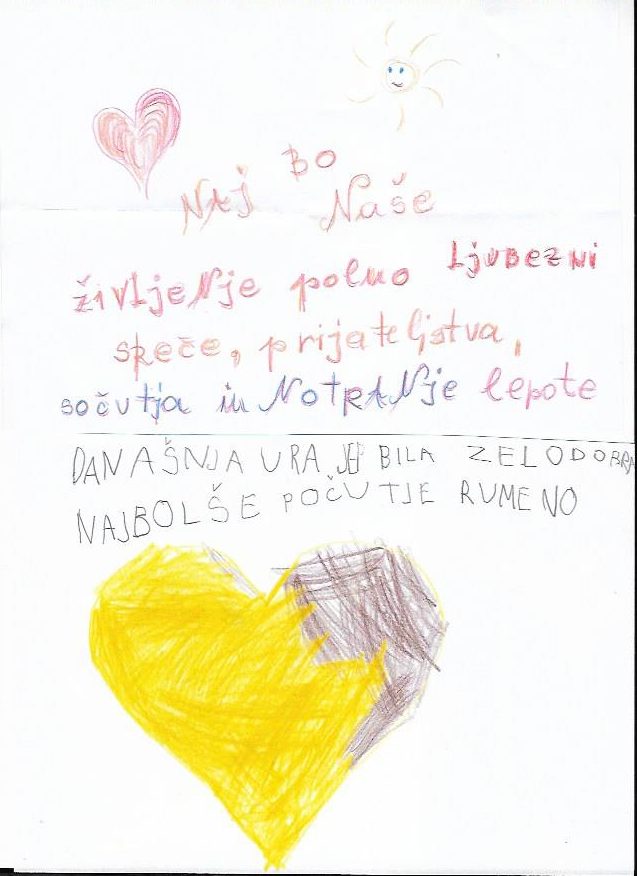 NAj BO Naše
življeNje polno LjUBEZNi
sreče, prijateljstva,
sočutja in NotRANje lepote
DANAŠNJA URA JE BILA ZELODOBRA
NAJBOLŠE POČUTJE RUMENO